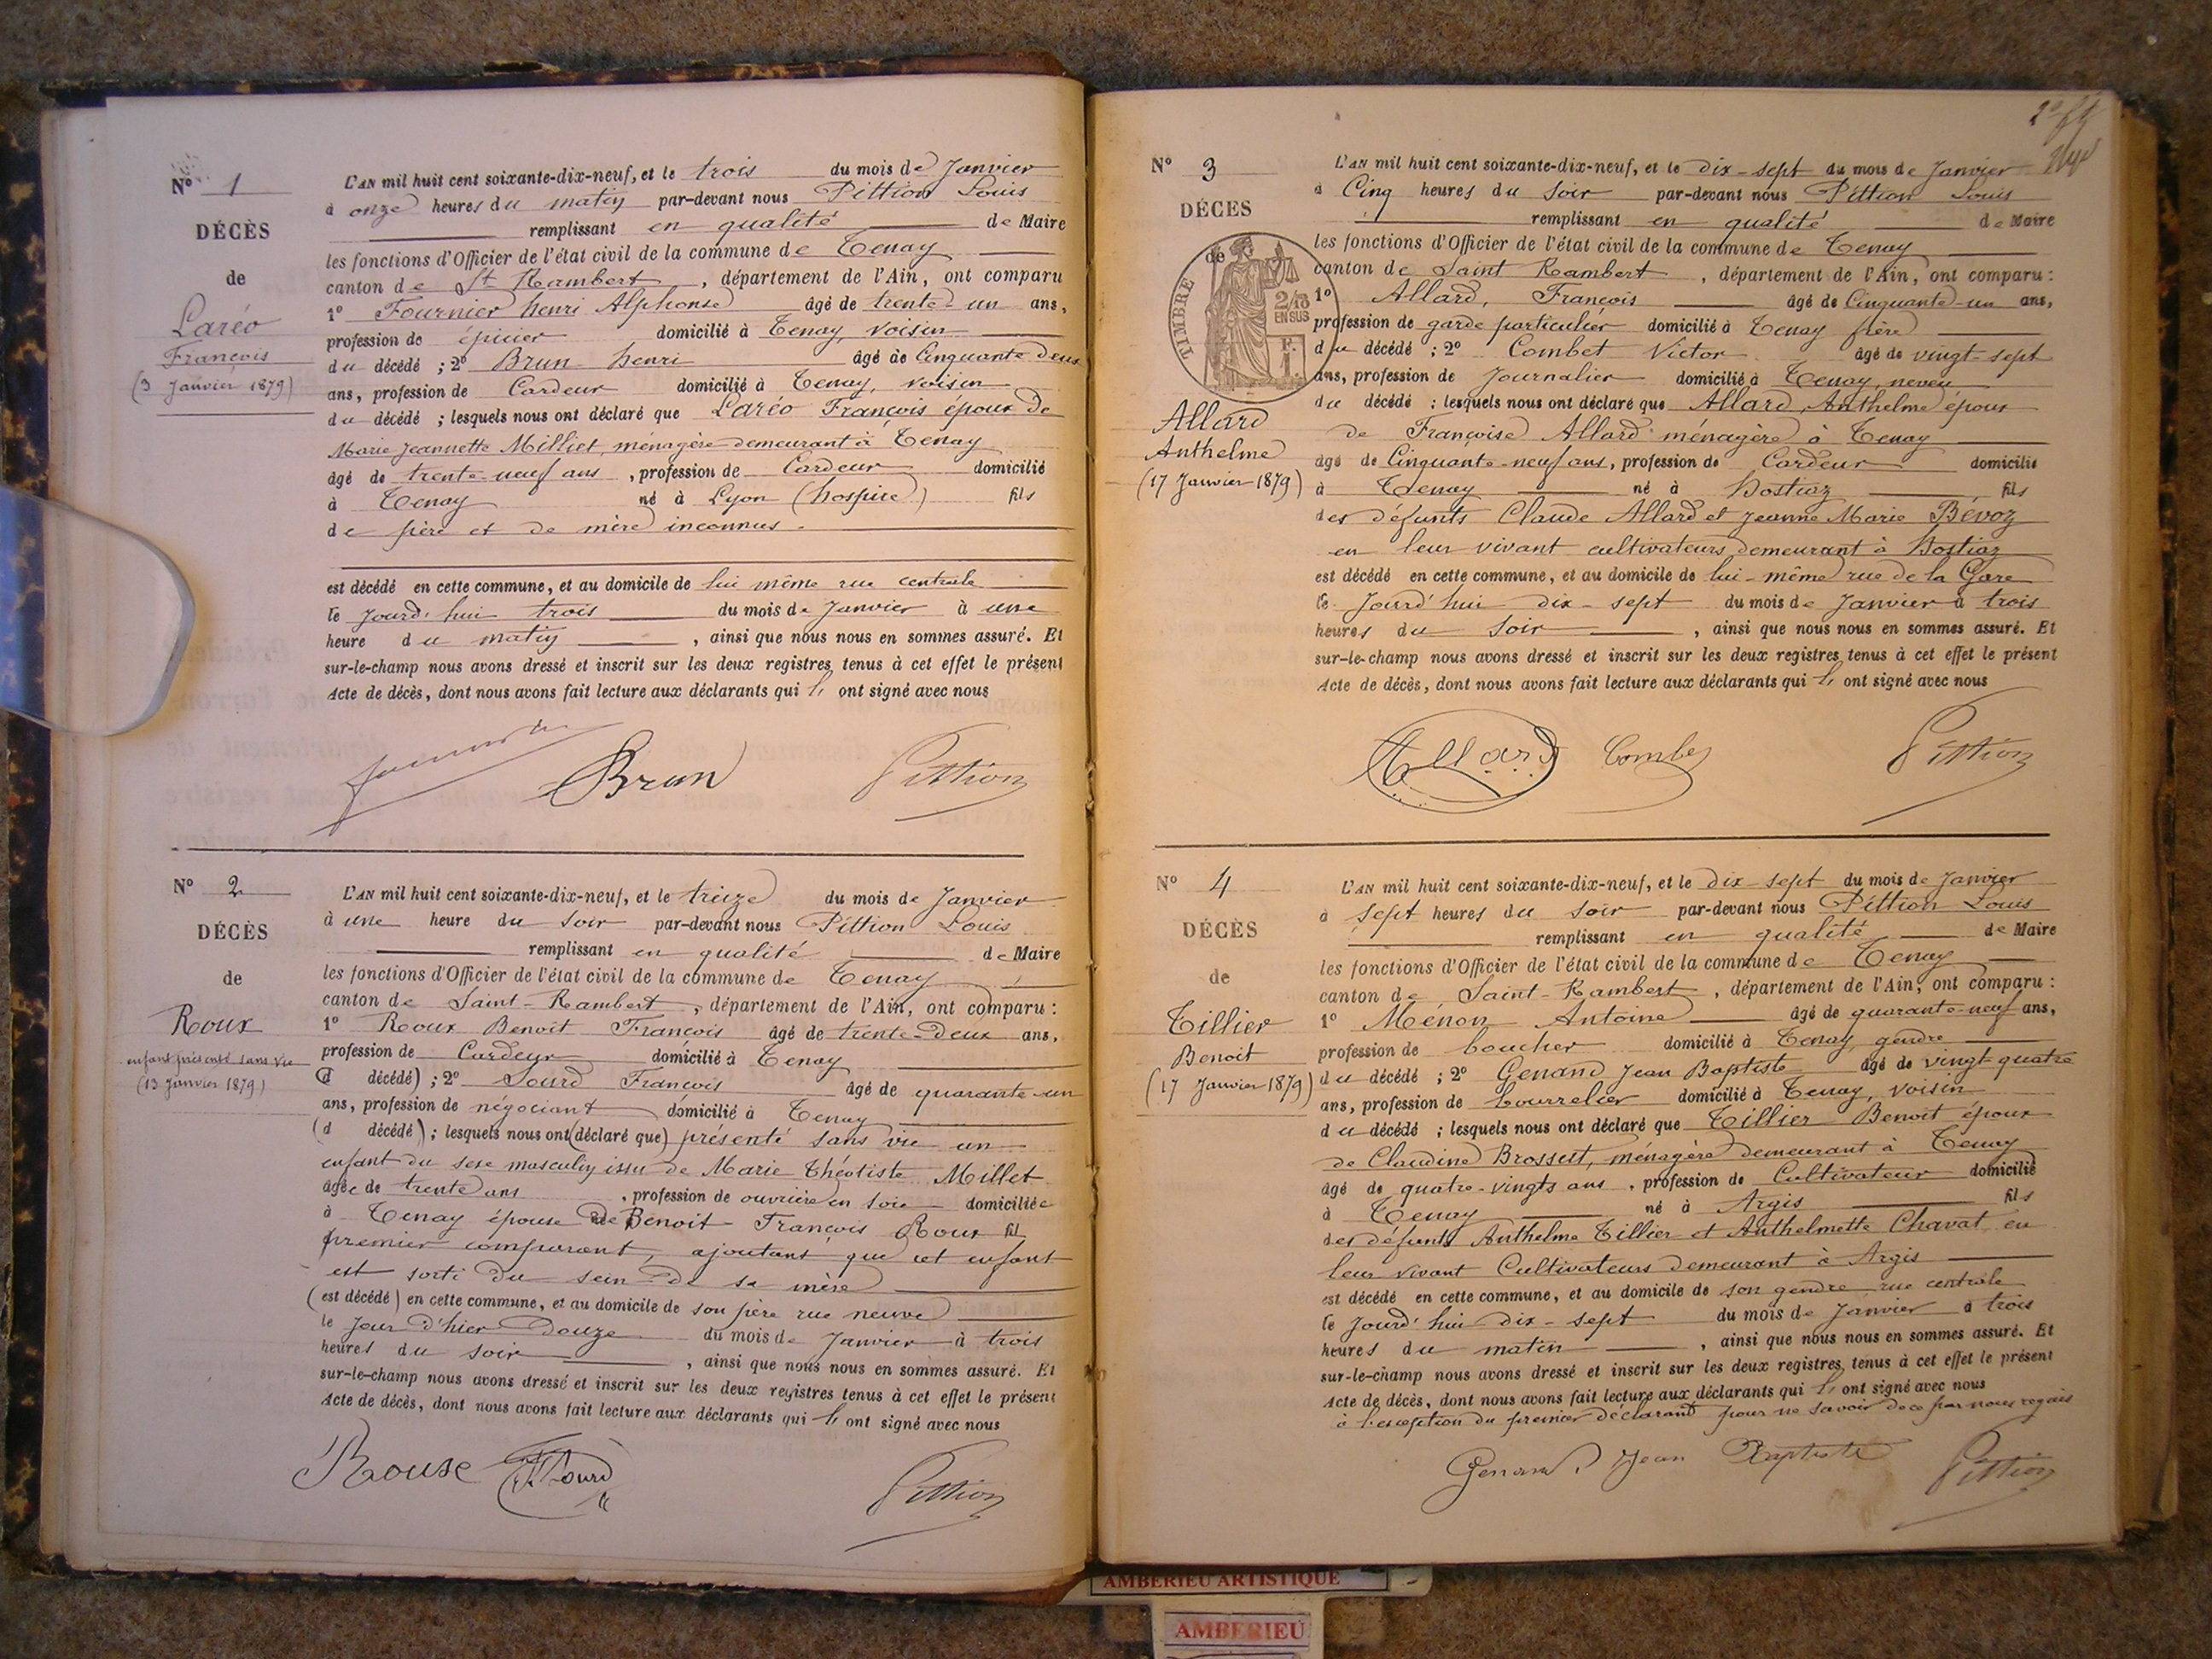 N° 1
DÉCÈS
de
Laréo
François
(3 Janvier 1879)
L'AN mil huit cent soixante-dix-neuf, et le trois du mois de Janvier
à onze heures du matin par-devant nous Pittion Louis
remplissant en qualité de Maire
les fonctions d'Officier de l'état civil de la commune de Tenay
canton de St Rambert, département de l'Ain, ont comparu
1° Fournier henri Alphonse âgé de trente-un ans,
profession de épicier domicilié à Tenay, voisin
du décédé ; 2° Brun henri âgé de Cinquante deux
ans, profession de Cardeur domicilié à Tenay, voisin
du décédé ; lesquels nous ont déclaré que Laréo François époux de
Marie Jeannette Milliet, ménagère demeurant à Tenay
âgé de trente-neuf ans, profession de Cardeur domicilié
à Tenay né à Lyon (hospice) fils
de père et de mère inconnus.
est décédé en cette commune, et au domicile de lui même rue centrale
le jourd'hui trois du mois de Janvier à une
heure du matin, ainsi que nous nous en sommes assuré. Et
sur-le-champ nous avons dressé et inscrit sur les deux registres tenus à cet effet le présent
Acte de décès, dont nous avons fait lecture aux déclarants qui l' ont signé avec nous
Brun Pittion
N° 2
DÉCÈS
de
Roux
enfant présenté sans vie
(13 Janvier 1879)
L'AN mil huit cent soixante-dix-neuf, et le treize du mois de Janvier
à une heure du soir par-devant nous Pittion Louis
remplissant en qualité de Maire
les fonctions d'Officier de l'état civil de la commune de Tenay
canton de Saint-Rambert, département de l'Ain, ont comparu :
1° Roux Benoit François âgé de trente-deux ans,
profession de Cardeur domicilié à Tenay
(d décédé) ; 2° Lourd François âgé de quarante-un
ans, profession de négociant domicilié à Tenay
(d décédé) ; lesquels nous ont (déclaré que) présenté sans vie un
enfant du sexe masculin issu de Marie Théotiste Millet
âgée de trente ans, profession de ouvrière en soie domiciliée
à Tenay épouse de Benoit François Roux fil
premier comparant, ajoutant que cet enfant
est sorti du sein de sa mère
(est décédé) en cette commune, et au domicile de son père rue neuve
le jour d'hier douze du mois de Janvier à trois
heures du soir, ainsi que nous nous en sommes assuré. Et
sur-le-champ nous avons dressé et inscrit sur les deux registres tenus à cet effet le présent
Acte de décès, dont nous avons fait lecture aux déclarants qui l' ont signé avec nous
Rouse Lourd Pittion
N° 3
DÉCES
de
TIMBRE
2/10
EN SUS
Allard
Anthelme
(17 Janvier 1879)
L'AN mil huit cent soixante-dix-neuf, et le dix-sept du mois de Janvier
à Cinq heures du soir par-devant nous Pittion Louis
remplissant en qualité de Maire
les fonctions d'Officier de l'état civil de la commune de Tenay
canton de Saint Rambert, département de l'Ain, ont comparu :
1° Allard, François âgé de Cinquante-un ans,
profession de garde particulier domicilié à Tenay frère
du décédé ; 2° Combet Victor âgé de vingt-sept
ans, profession de Journalier domicilié à Tenay, neveu
du décédé ; lesquels nous ont déclaré que Allard, Anthelme époux
de Françoise Allard ménagère à Tenay
âgé de Cinquante-neuf ans, profession de Cardeur domicilié
à Tenay né à hostiaz fils
des défunts Claude Allard et Jeanne Marie Bévoz
en leur vivant cultivateurs demeurant à hostiaz
est décédé en cette commune, et au domicile de lui-même rue de la Gare
le Jourd'hui dix-sept du mois de Janvier à trois
heures du soir, ainsi que nous nous en sommes assuré. Et
sur-le-champ nous avons dressé et inscrit sur les deux registres tenus à cet effet le présent
Acte de décès, dont nous avons fait lecture aux déclarants qui l' ont signé avec nous
Allard Combet Pittion
N° 4
DÉCÈS
de
Tillier
Benoit
(17 Janvier 1879)
L'AN mil huit cent soixante-dix-neuf, et le dix-sept du mois de Janvier
à sept heures du soir par-devant nous Pittion Louis
remplissant en qualité de Maire
les fonctions d'Officier de l'état civil de la commune de Tenay
canton de Saint-Rambert, département de l'Ain, ont comparu :
1° Menon Antoine âgé de quarante-neuf ans,
profession de boucher domicilié à Tenay, gendre
du décédé ; 2° Genand Jean Baptiste âgé de vingt-quatre
ans, profession de bourrelier domicilié à Tenay, voisin
du décédé ; lesquels nous ont déclaré que Tillier Benoit époux
de Claudine Brossert, ménagère demeurant à Tenay
âgé de quatre-vingts ans, profession de Cultivateur domicilié
à Tenay né à Argis fils
des défunts Anthelme Tillier et Anthelmette Chavat en
leur vivant Cultivateurs demeurant à Argis
est décédé en cette commune, et au domicile de son gendre rue centrale
le jourd'hui dix-sept du mois de Janvier à trois
heures du matin, ainsi que nous nous en sommes assuré. Et
sur-le-champ nous avons dressé et inscrit sur les deux registres tenus à cet effet le présent
Acte de décès, dont nous avons fait lecture aux déclarants qui l' ont signé avec nous
à l'exception du premier déclarant pour ne savoir de ce par nous requis
Genand Jean Baptiste Pittion
AMBERIEU ARTISTIQUE
AMBERIEU